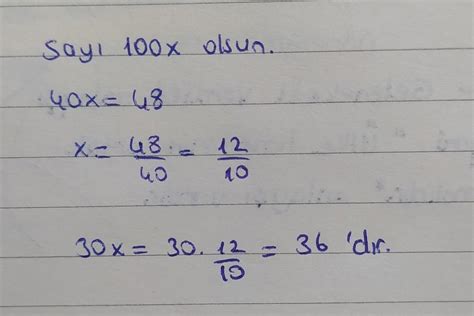 Sayı 100x olsun.
40x = 48
x = 48/40 = 12/10
30x = 30. 12/10 = 36 'dır.